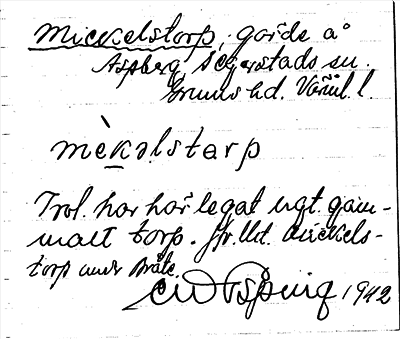 Mickelstorp, gärde å
Aspberg, Segerstads sn.
Grums hd. Värml. l.
mèkəlstərp
Trol. har här legat ngt gam-
malt torp. Jfr. Mickels-
torp under Bråte.
1942